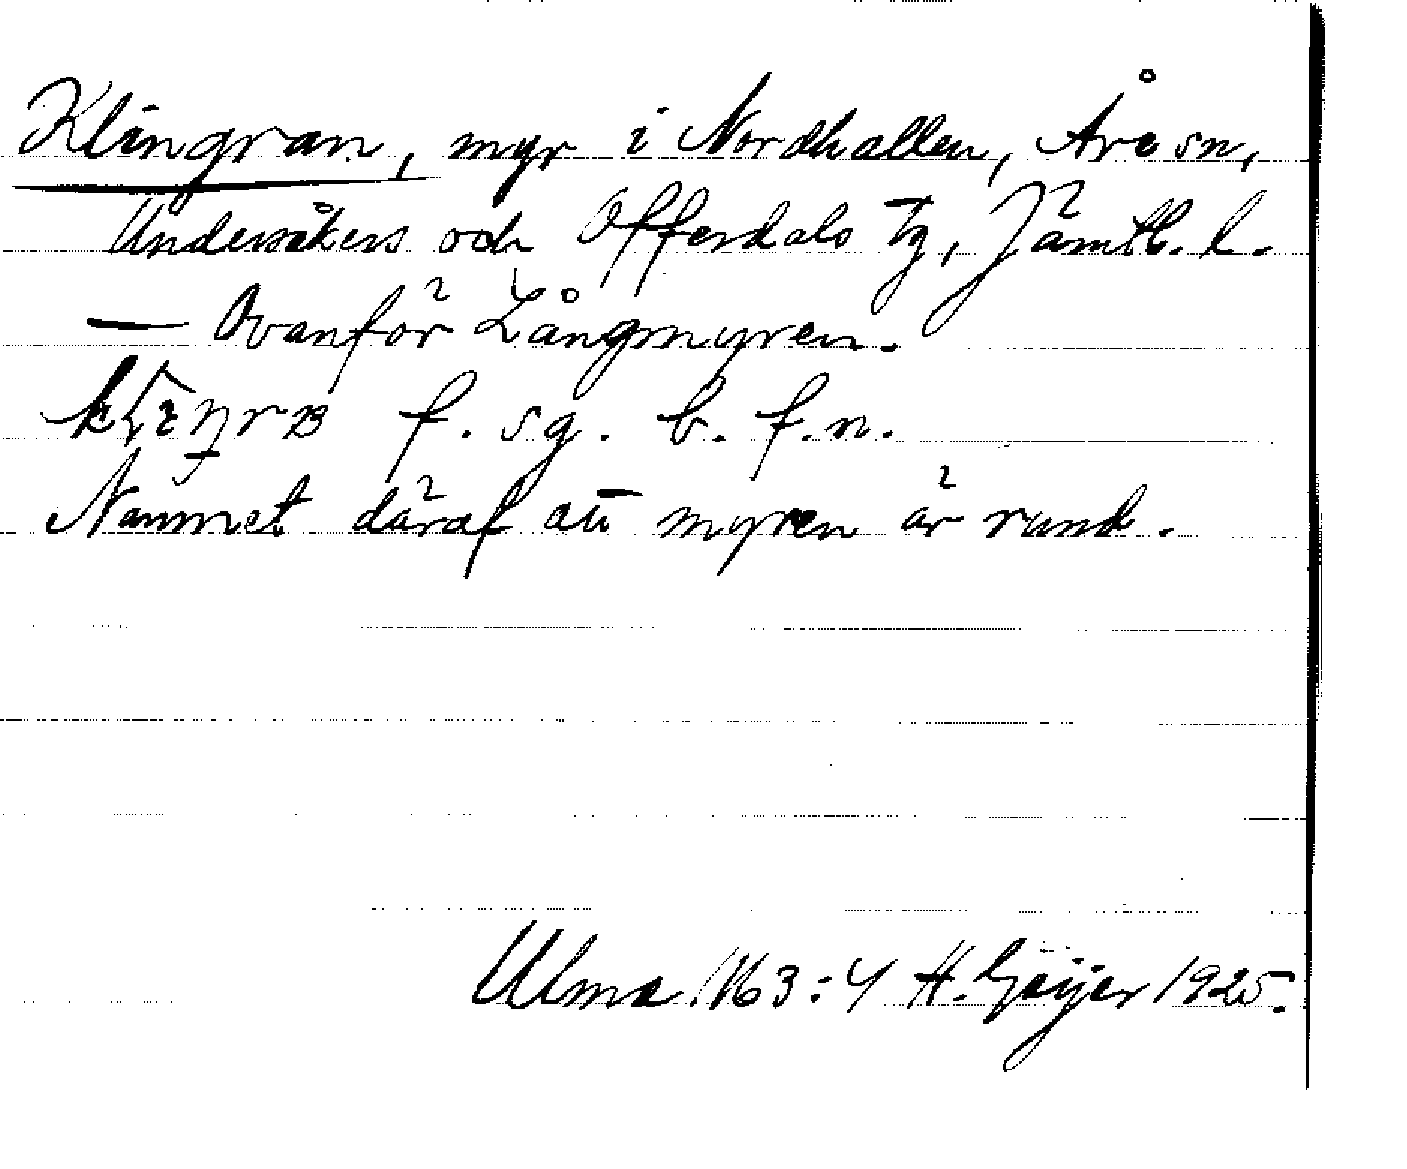 Klingran, myr i Nordhallen, Åre sn,
Undersåkers och Offerdals tg, Jämtl. l.
— Ovanför Långmyren.
f. sg. b. f.n.
Namnet däraf att myren är rund.
Ulma 163:4 H. Geijer 1925.